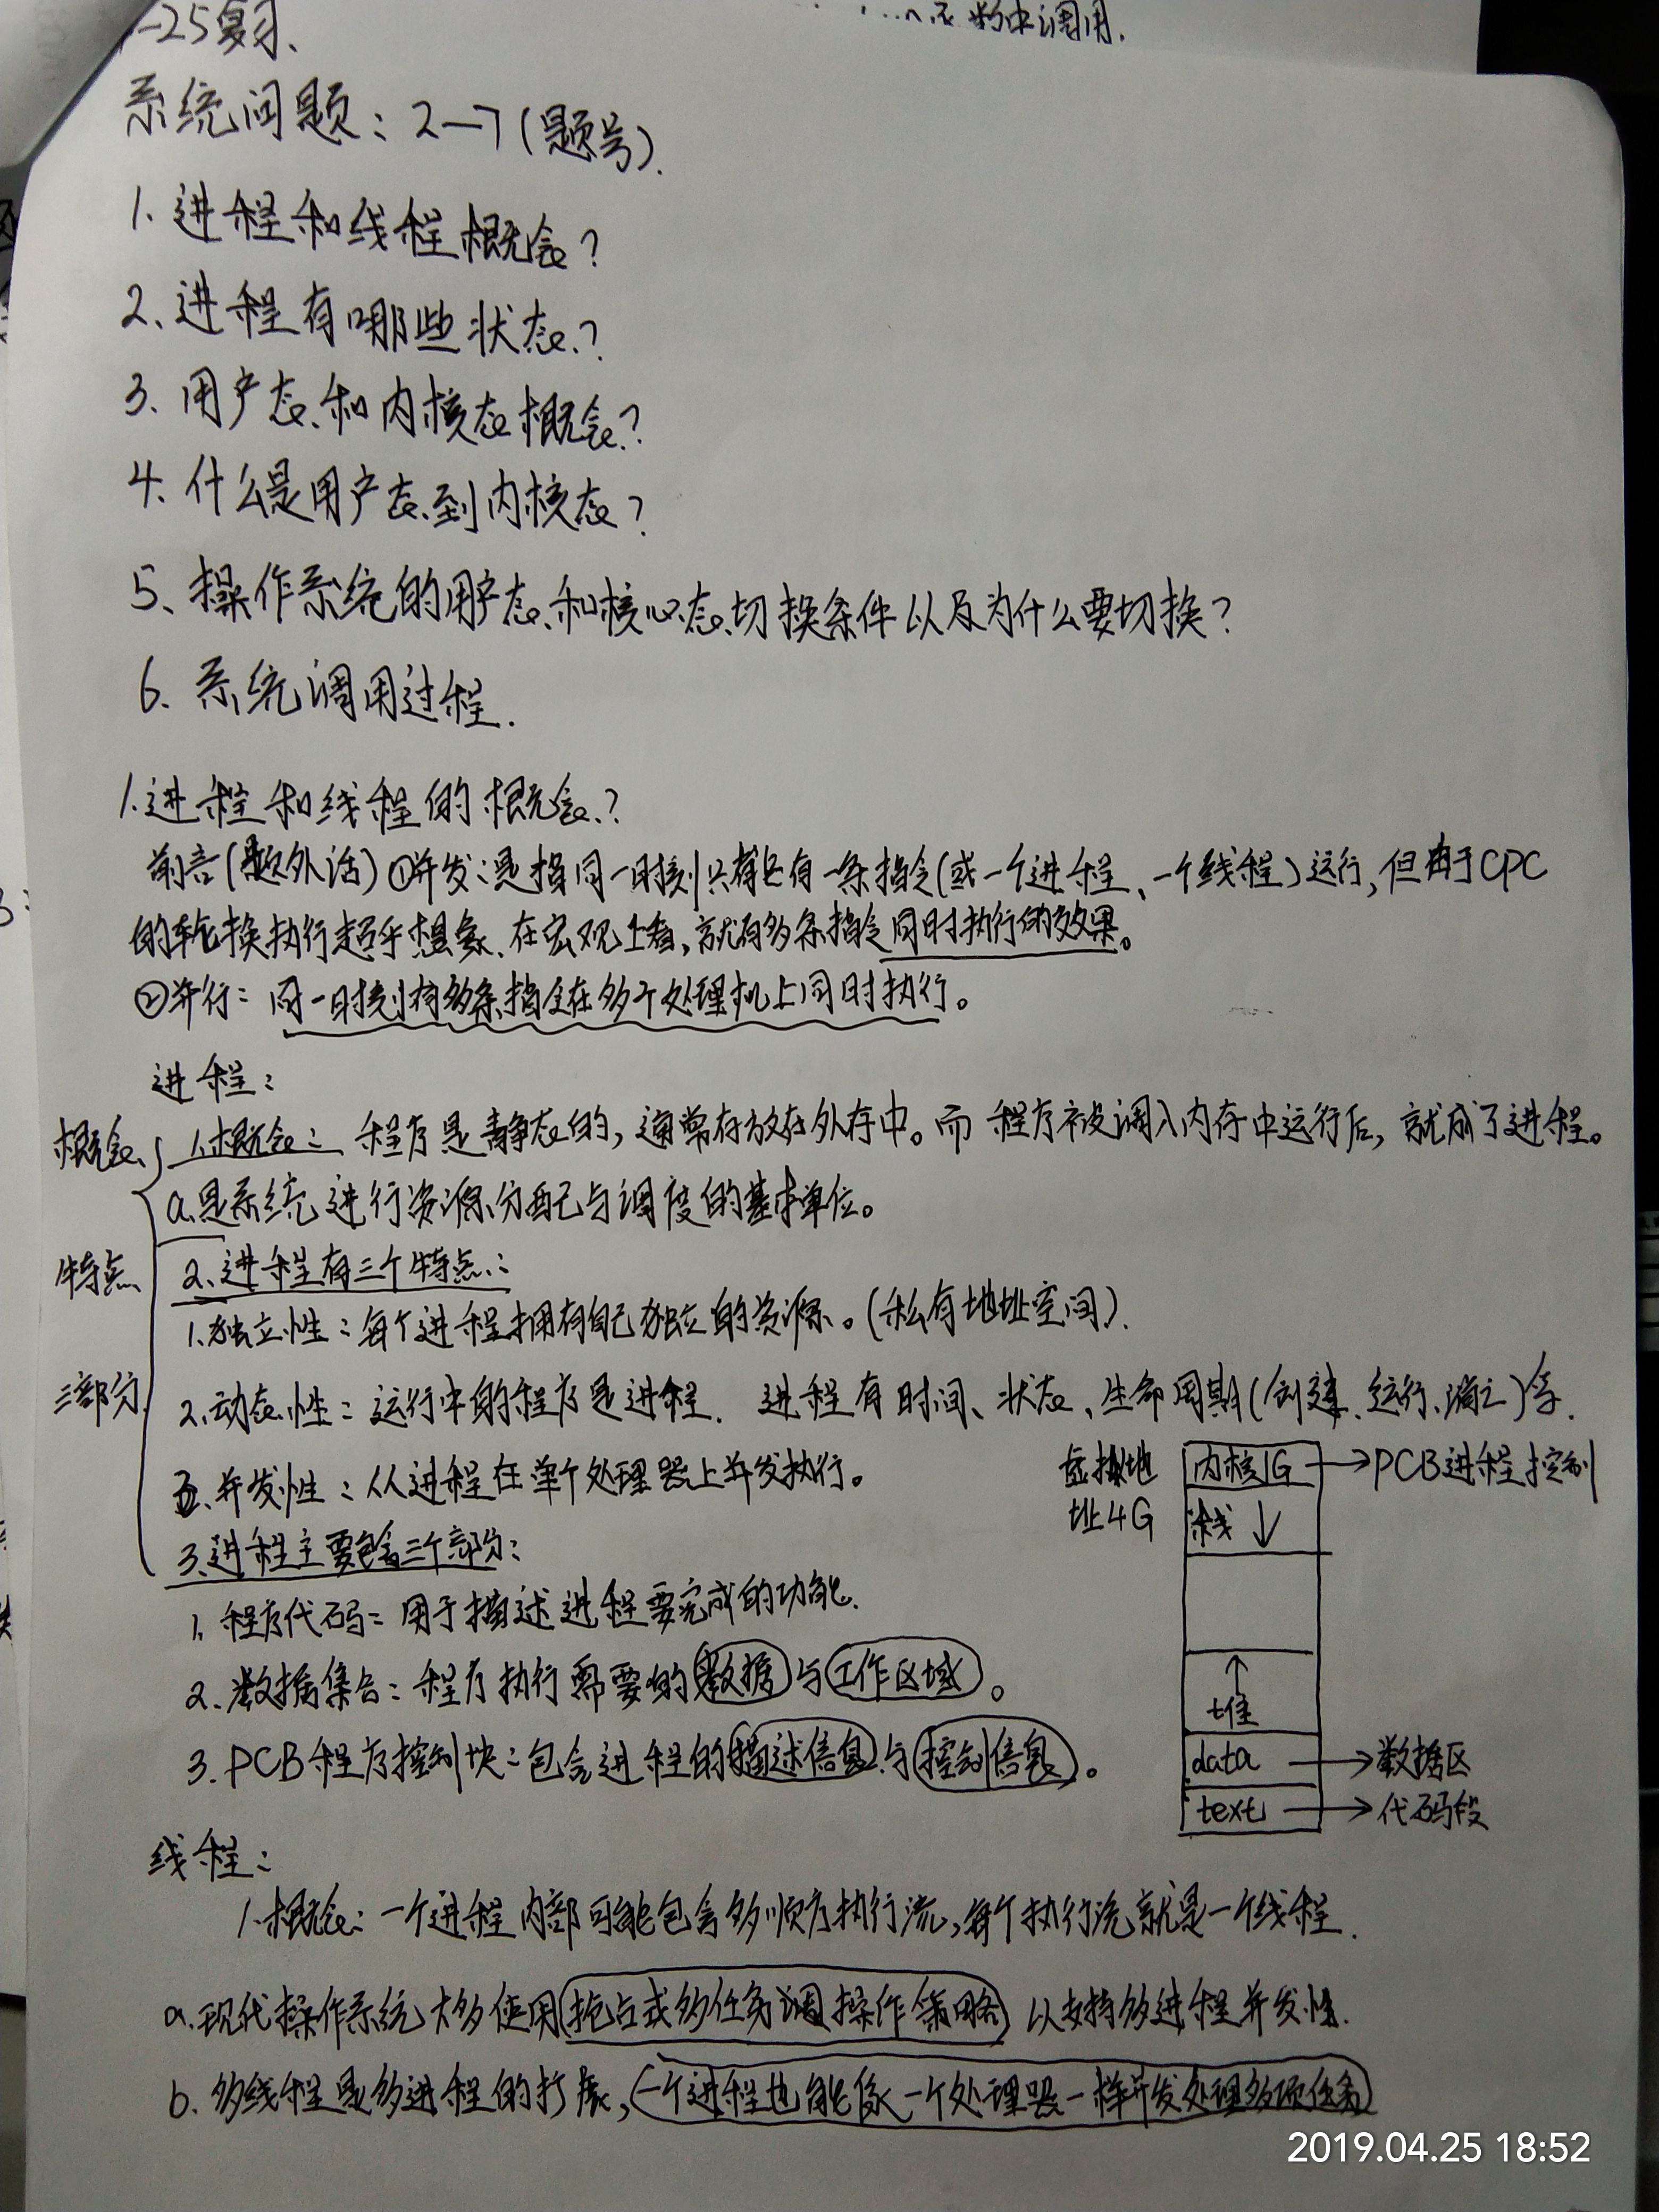 数中调用.
-25复习、
系统问题：2—7(题号).
1. 进程和线程概念?
2、进程有哪些状态?
3. 用户态和内核态概念?
4. 什么是用户态到内核态?
5、操作系统的用户态和核心态切换条件以及为什么要切换?
6. 系统调用过程.
1.进程和线程的概念?
前言(题外话)①并发:是指同一时刻只有一条指令(或一个进程、一个线程)运行,但由于CPC
的轮换执行超乎想象、在宏观上看,就有多条指令同时执行的效果。
②并行: 同一时刻有多条指令在多个处理机上同时执行。
进程:
概念
1.概念: 程序是静态的,通常存放在外存中。而程序被调入内存中运行后,就成了进程。
a.是系统进行资源分配与调度的基本单位。
特点
2、进程有三个特点:
1.独立性:每个进程拥有自己独立的资源。(私有地址空间).
三部分
2.动态性:运行中的程序是进程. 进程有时间、状态、生命周期(创建、运行、消亡)等.
3、并发性:从进程在单个处理器上并发执行。
虚拟地
址4G
内核1G→PCB进程控制
栈↓
3.进程主要包含三个部分:
1. 程序代码:用于描述进程要完成的功能.
2. 数据集合:程序执行需要的数据与工作区域。
↑
data→数据区
3. PCB程序控制块:包含进程的描述信息与控制信息。
text→代码段
线程:
1.概念:一个进程内部可能包含多顺序执行流,每个执行流就是一个线程.
a.现代操作系统大多使用抢占式多任务调操作策略 以支持多进程并发性.
b. 多线程是多进程的扩展,(一个进程也能像一个处理器一样并发处理多项任务)
2019.04.25 18:52